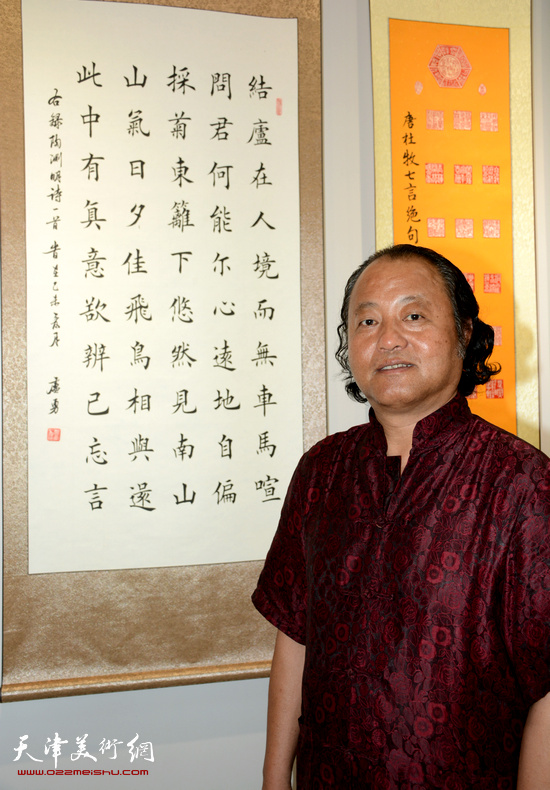 結廬在人境而無車馬喧
問君何能尔心遠地自偏
採菊東籬下悠然見南山
山氣日夕佳飛鳥相與還
此中有真意欲辨已忘言
右錄陶渊明诗一首
唐杜牧七言绝句
天津美術網
www.022meishu.com